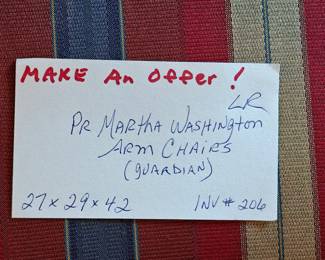 MAKE An Offer !
LR
PR MARTHA WASHINGTON
ARM CHAIRS
(GUARDIAN)
27 x 29 x 42 INV # 206